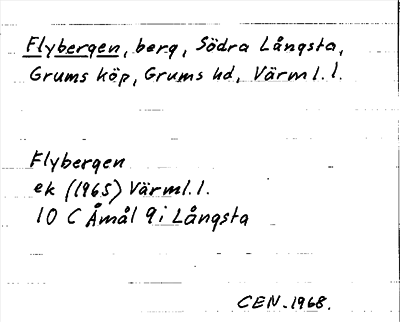 Flybergen, berg, Södra Långsta,
Grums köp, Grums hd, Värml. l.
Flybergen
ek (1965) Värml. l.
10 C Åmål 9i Långsta
CEN-1968.